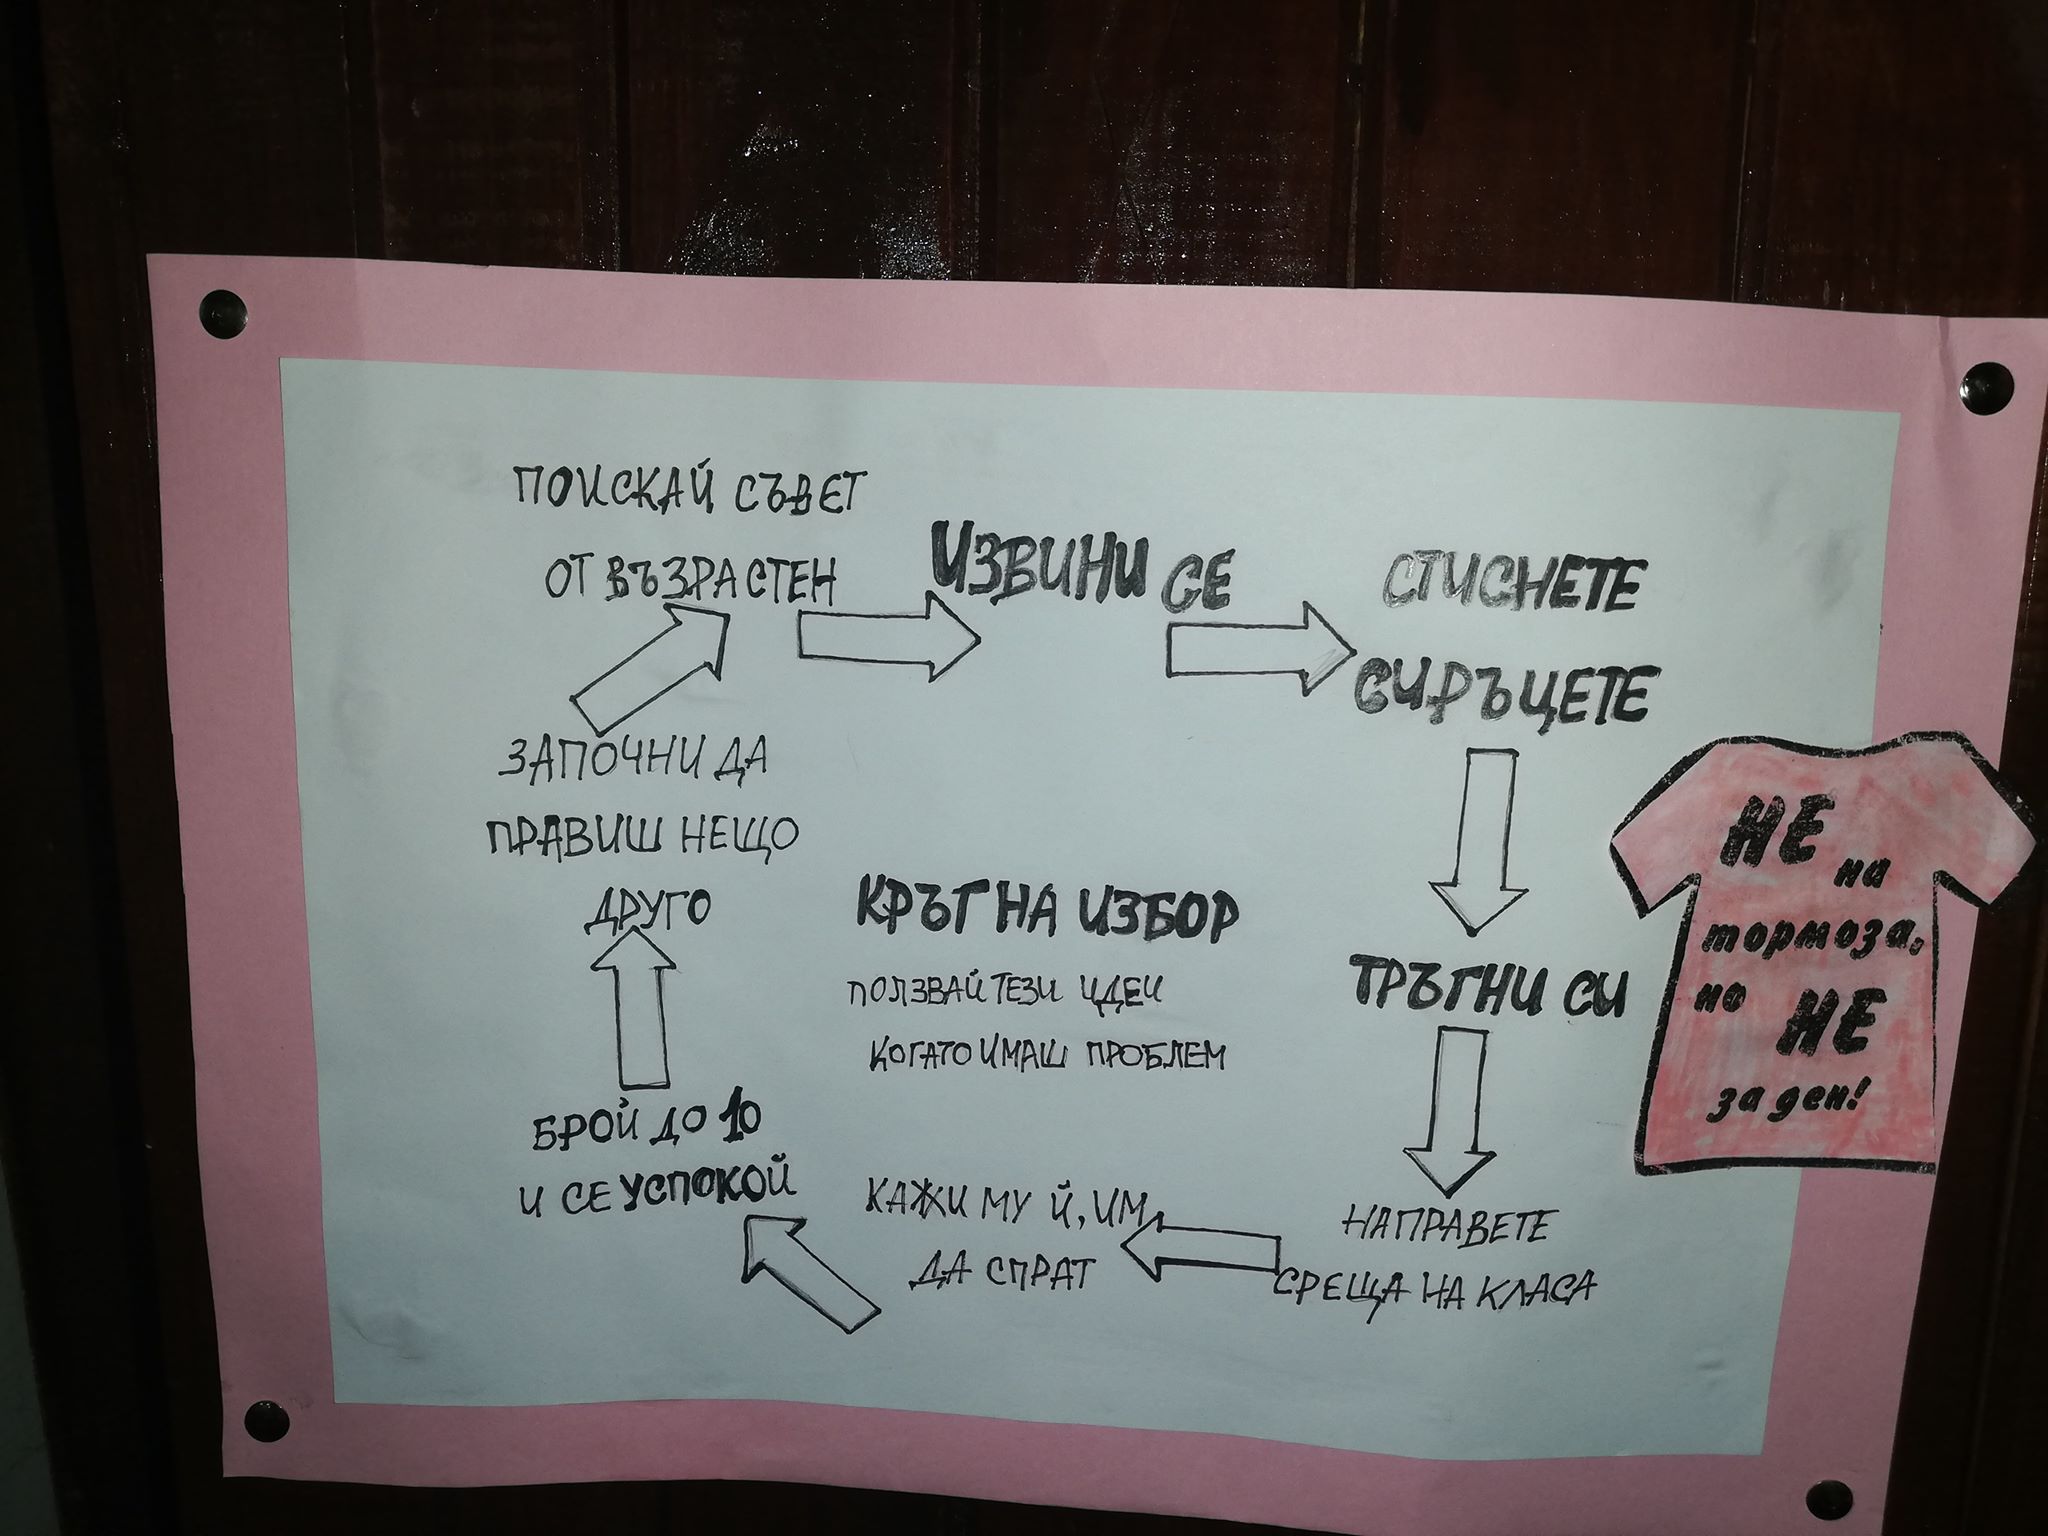 ПОИСКАЙ СЪВЕТ
ОТ ВЪЗРАСТЕН
ИЗВИНИ СЕ
СТИСНЕТЕ
СИ РЪЦЕТЕ
ТРЪГНИ СИ
НАПРАВЕТЕ
СРЕЩА НА КЛАСА
КАЖИ МУ Й, ИМ,
ДА СПРАТ
БРОЙ ДО 10
И СЕ УСПОКОЙ
ЗАПОЧНИ ДА
ПРАВИШ НЕЩО
ДРУГО
КРЪГ НА ИЗБОР
ПОЛЗВАЙ ТЕЗИ ИДЕИ
КОГАТО ИМАШ ПРОБЛЕМ
НЕ на
тормоза,
но НЕ
за ден!